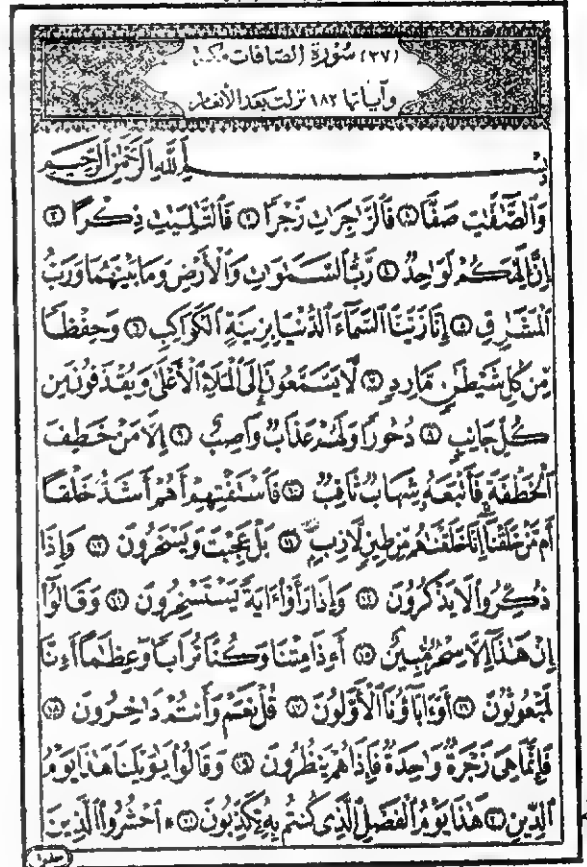 (٣٧) سُورَةُ الصَّافَاتِ مَكِّيَّة
وَآيَاتُهَا ١٨٢ نَزَلَتْ بَعْدَ الْأَنْعَامِ
بِسْمِ ٱللَّهِ ٱلرَّحْمَٰنِ ٱلرَّحِيمِ
وَٱلصَّٰٓفَّٰتِ صَفًّا ١ فَٱلزَّٰجِرَٰتِ زَجْرًا ٢ فَٱلتَّٰلِيَٰتِ ذِكْرًا ٣
إِنَّ إِلَٰهَكُمْ لَوَٰحِدٌ ٤ رَّبُّ ٱلسَّمَٰوَٰتِ وَٱلْأَرْضِ وَمَا بَيْنَهُمَا وَرَبُّ
ٱلْمَشَٰرِقِ ٥ إِنَّا زَيَّنَّا ٱلسَّمَآءَ ٱلدُّنْيَا بِزِينَةٍ ٱلْكَوَاكِبِ ٦ وَحِفْظًا
مِّن كُلِّ شَيْطَٰنٍ مَّارِدٍ ٧ لَّا يَسَّمَّعُونَ إِلَى ٱلْمَلَإِ ٱلْأَعْلَىٰ وَيُقْذَفُونَ مِن
كُلِّ جَانِبٍ ٨ دُحُورًا وَلَهُمْ عَذَابٌ وَاصِبٌ ٩ إِلَّا مَنْ خَطِفَ
ٱلْخَطْفَةَ فَأَتْبَعَهُۥ شِهَابٌ ثَاقِبٌ ١٠ فَٱسْتَفْتِهِمْ أَهُمْ أَشَدُّ خَلْقًا
أَم مَّنْ خَلَقْنَآ إِنَّا خَلَقْنَٰهُم مِّن طِينٍ لَّازِبٍۭ ١١ بَلْ عَجِبْتَ وَيَسْخَرُونَ ١٢ وَإِذَا
ذُكِّرُوا۟ لَا يَذْكُرُونَ ١٣ وَإِذَا رَأَوْا۟ ءَايَةً يَسْتَسْخِرُونَ ١٤ وَقَالُوٓا۟
إِنْ هَٰذَآ إِلَّا سِحْرٌ مُّبِينٌ ١٥ أَءِذَا مِتْنَا وَكُنَّا تُرَابًا وَعِظَٰمًا أَءِنَّا
لَمَبْعُوثُونَ ١٦ أَوَءَابَآؤُنَا ٱلْأَوَّلُونَ ١٧ قُلْ نَعَمْ وَأَنتُمْ دَٰخِرُونَ ١٨
فَإِنَّمَا هِىَ زَجْرَةٌ وَٰحِدَةٌ فَإِذَا هُمْ يَنظُرُونَ ١٩ وَقَالُوا۟ يَٰوَيْلَنَا هَٰذَا يَوْمُ
ٱلدِّينِ ٢٠ هَٰذَا يَوْمُ ٱلْفَصْلِ ٱلَّذِى كُنتُم بِهِۦ تُكَذِّبُونَ ٢١ ٱحْشُرُوا۟ ٱلَّذِينَ